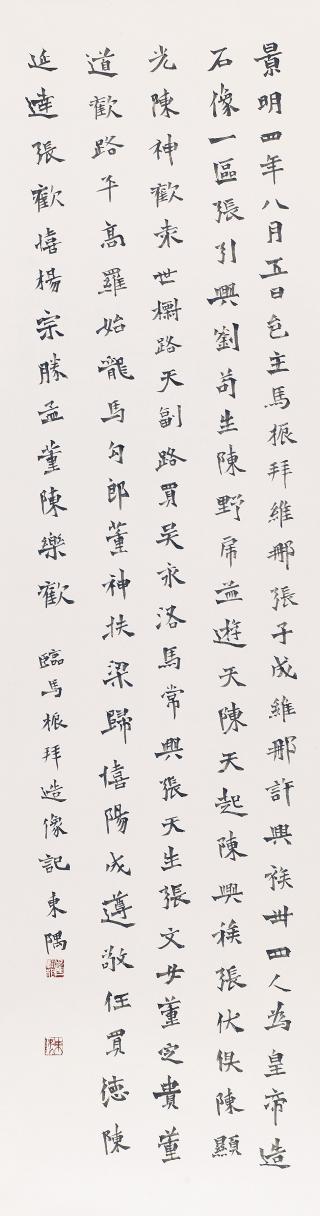 景明四年八月五日邑主馬振拜維那張子成維那許興族丗四人為皇帝造
石像一區張引興劉苟生陳野虎益遊天陳天起陳興族張伏保陳顯
光陳神歡袁世檦路天副路買吳永洛馬常興張天生張文安董定貴董
道歡路平高羅始龍馬勾郎董神扶梁歸憘陽成遵敬任買德陳
延達張歡憘楊宗勝孟董陳樂歡
臨馬振拜造像記 東隅